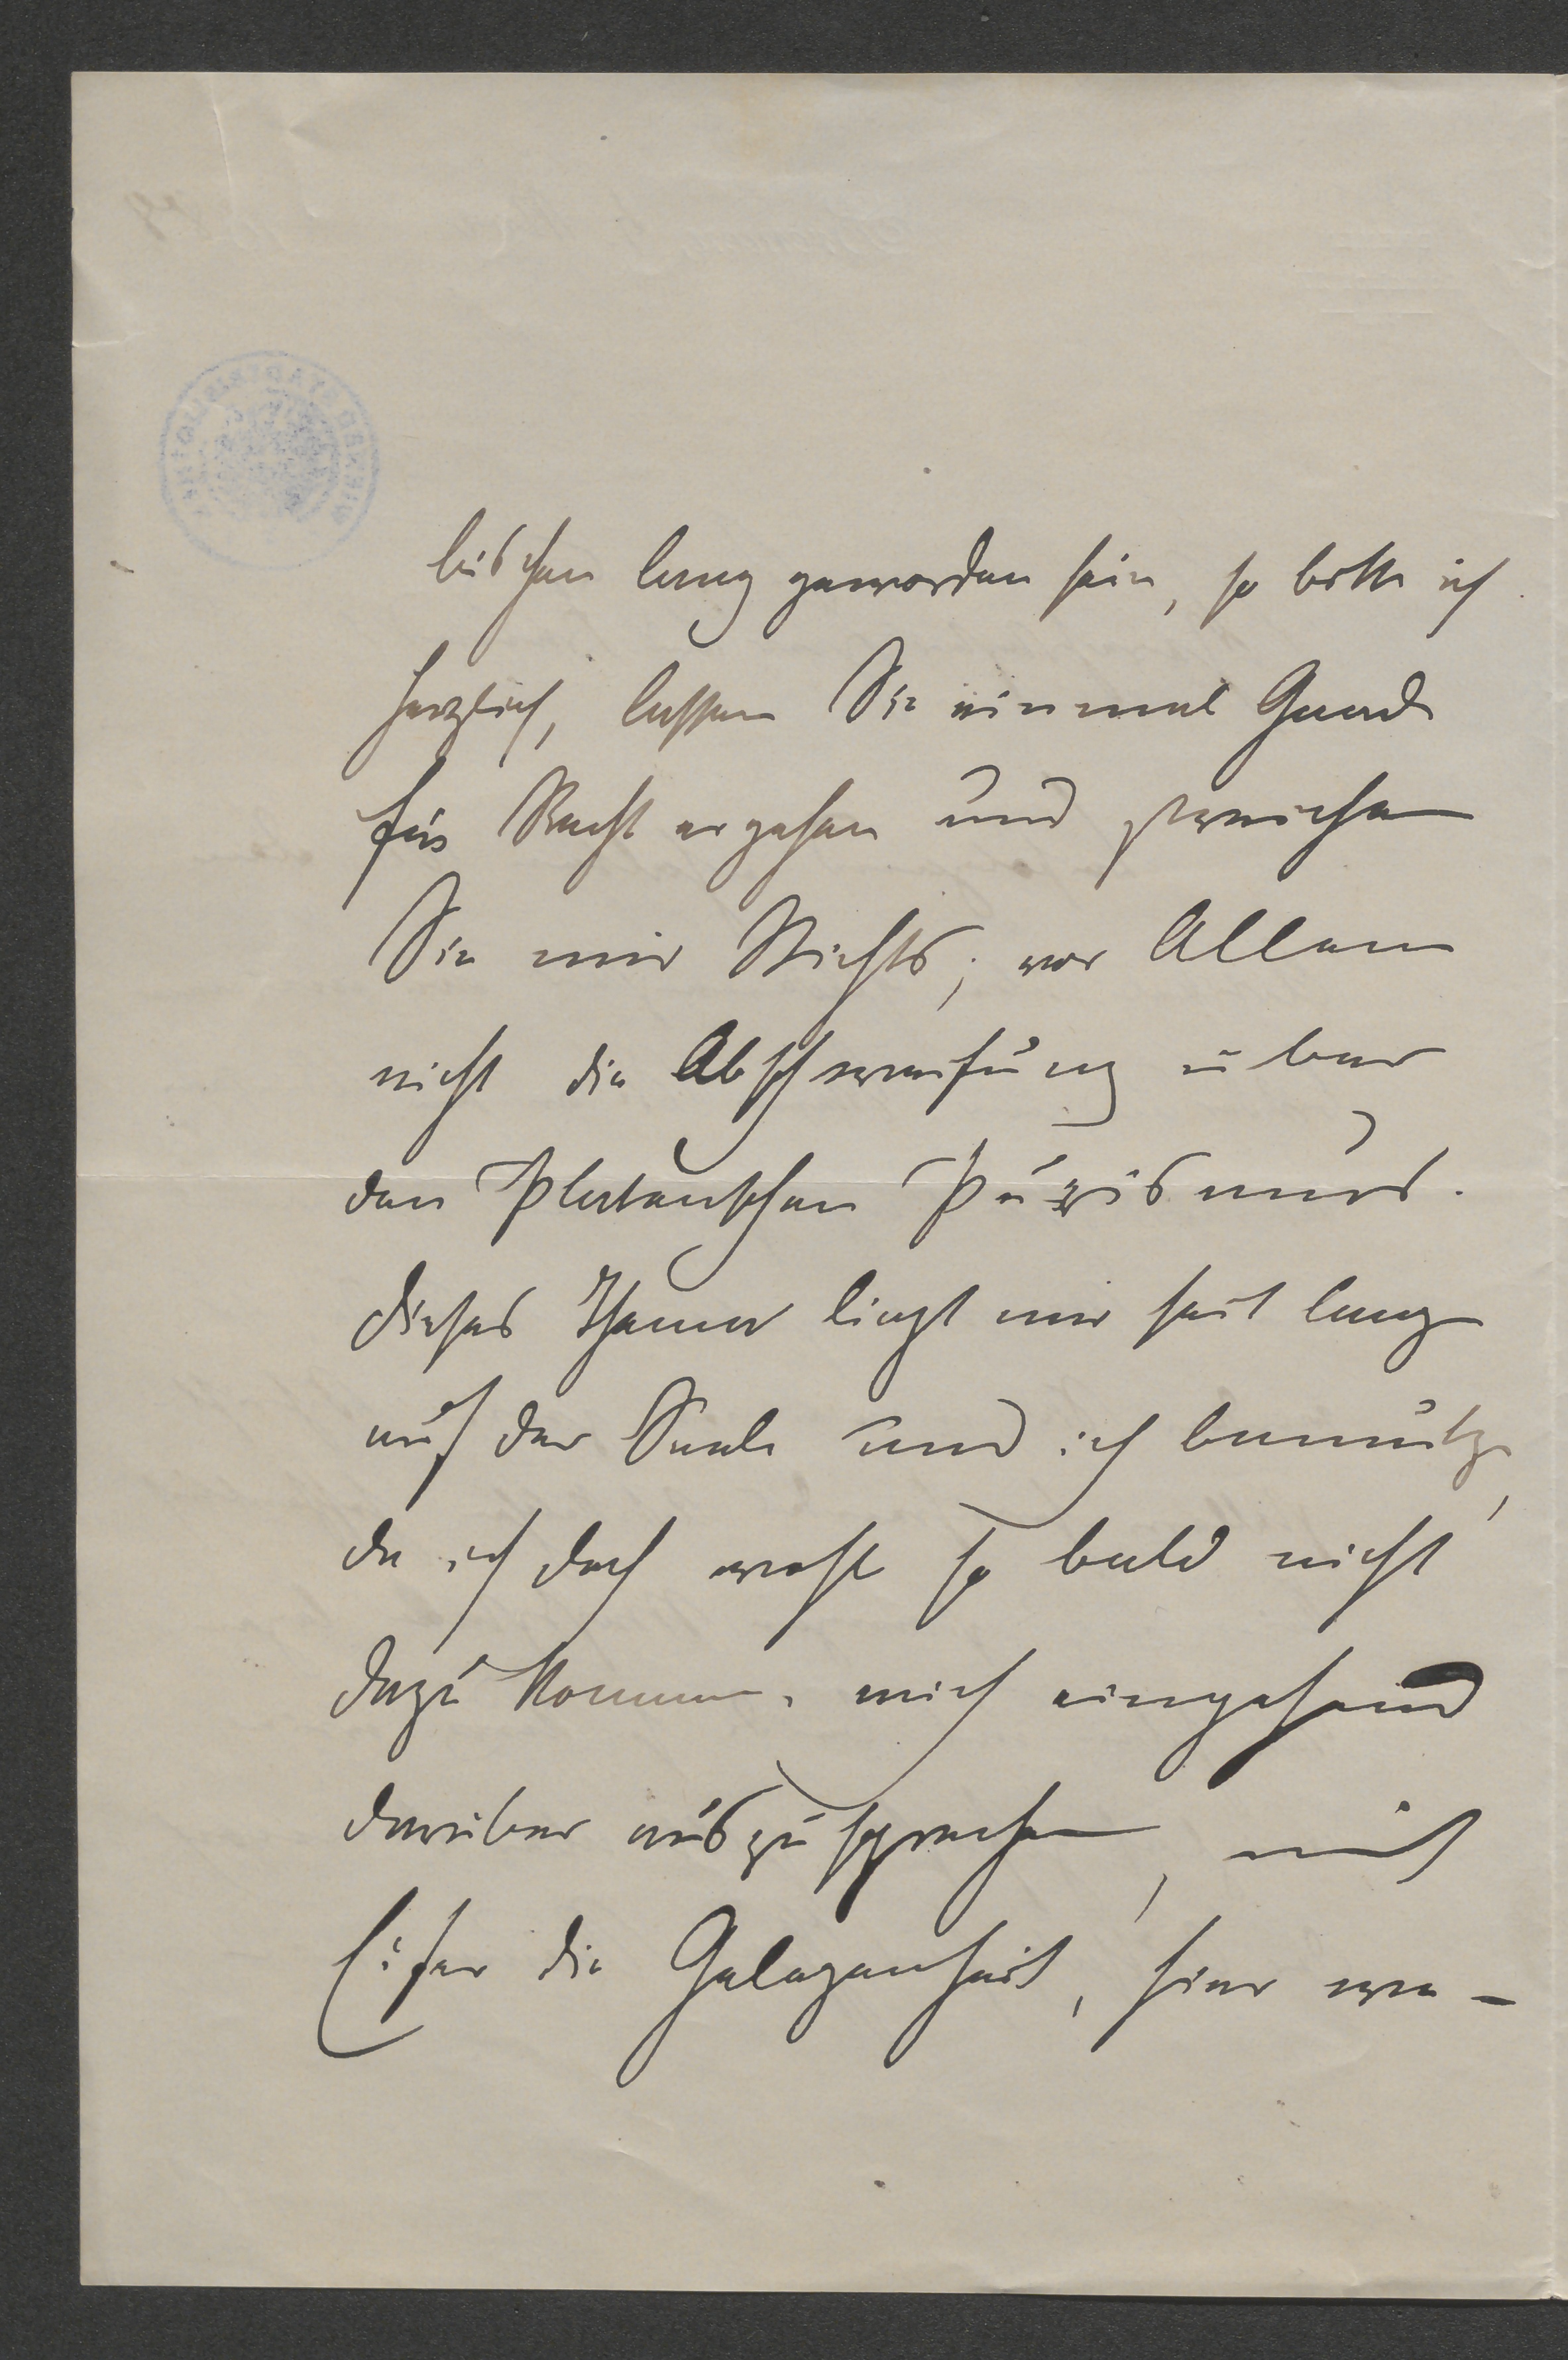 bischen lang geworden sein, so bitte ich
herzlich, lassen Sie einmal Gnade
für Recht ergehen und streichen
Sie mir Nichts; vor Allem
nicht die Abschweifung über
den Platenschen Purismus.
Dieses Thema liegt mir seit lange
auf der Seele und ich benutze,
da ich doch wohl so bald nicht
dazu komme, mich eingehend
darüber auszusprechen, mit
Eifer die Gelegenheit, hier we-